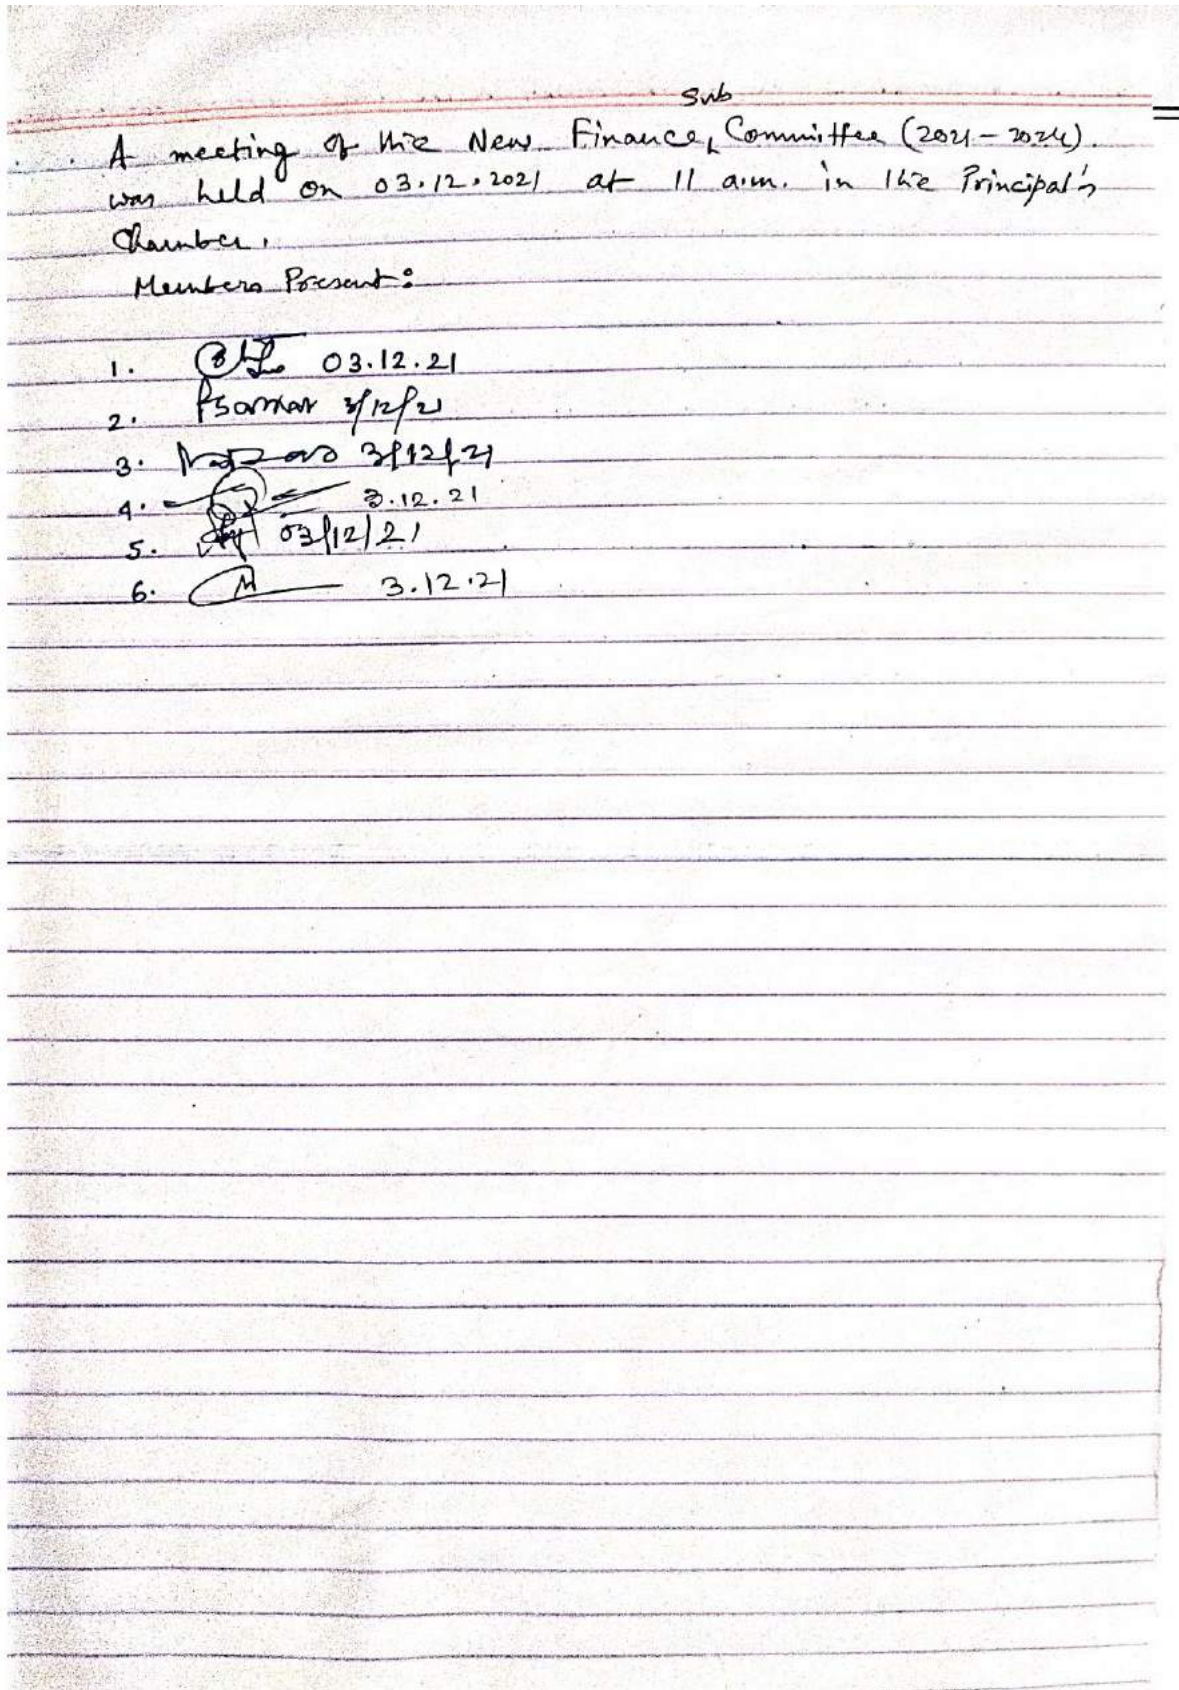 Sub
A meeting of the New Finance Committee (2021-2024).
was held on 03.12.2021 at 11 a.m. in the Principal's
Chamber.
Members Present:
1. 03.12.21
2. PSarkar 3/12/21
3. 3/12/21
4. 3.12.21
5. 03/12/21
6. 3.12.21